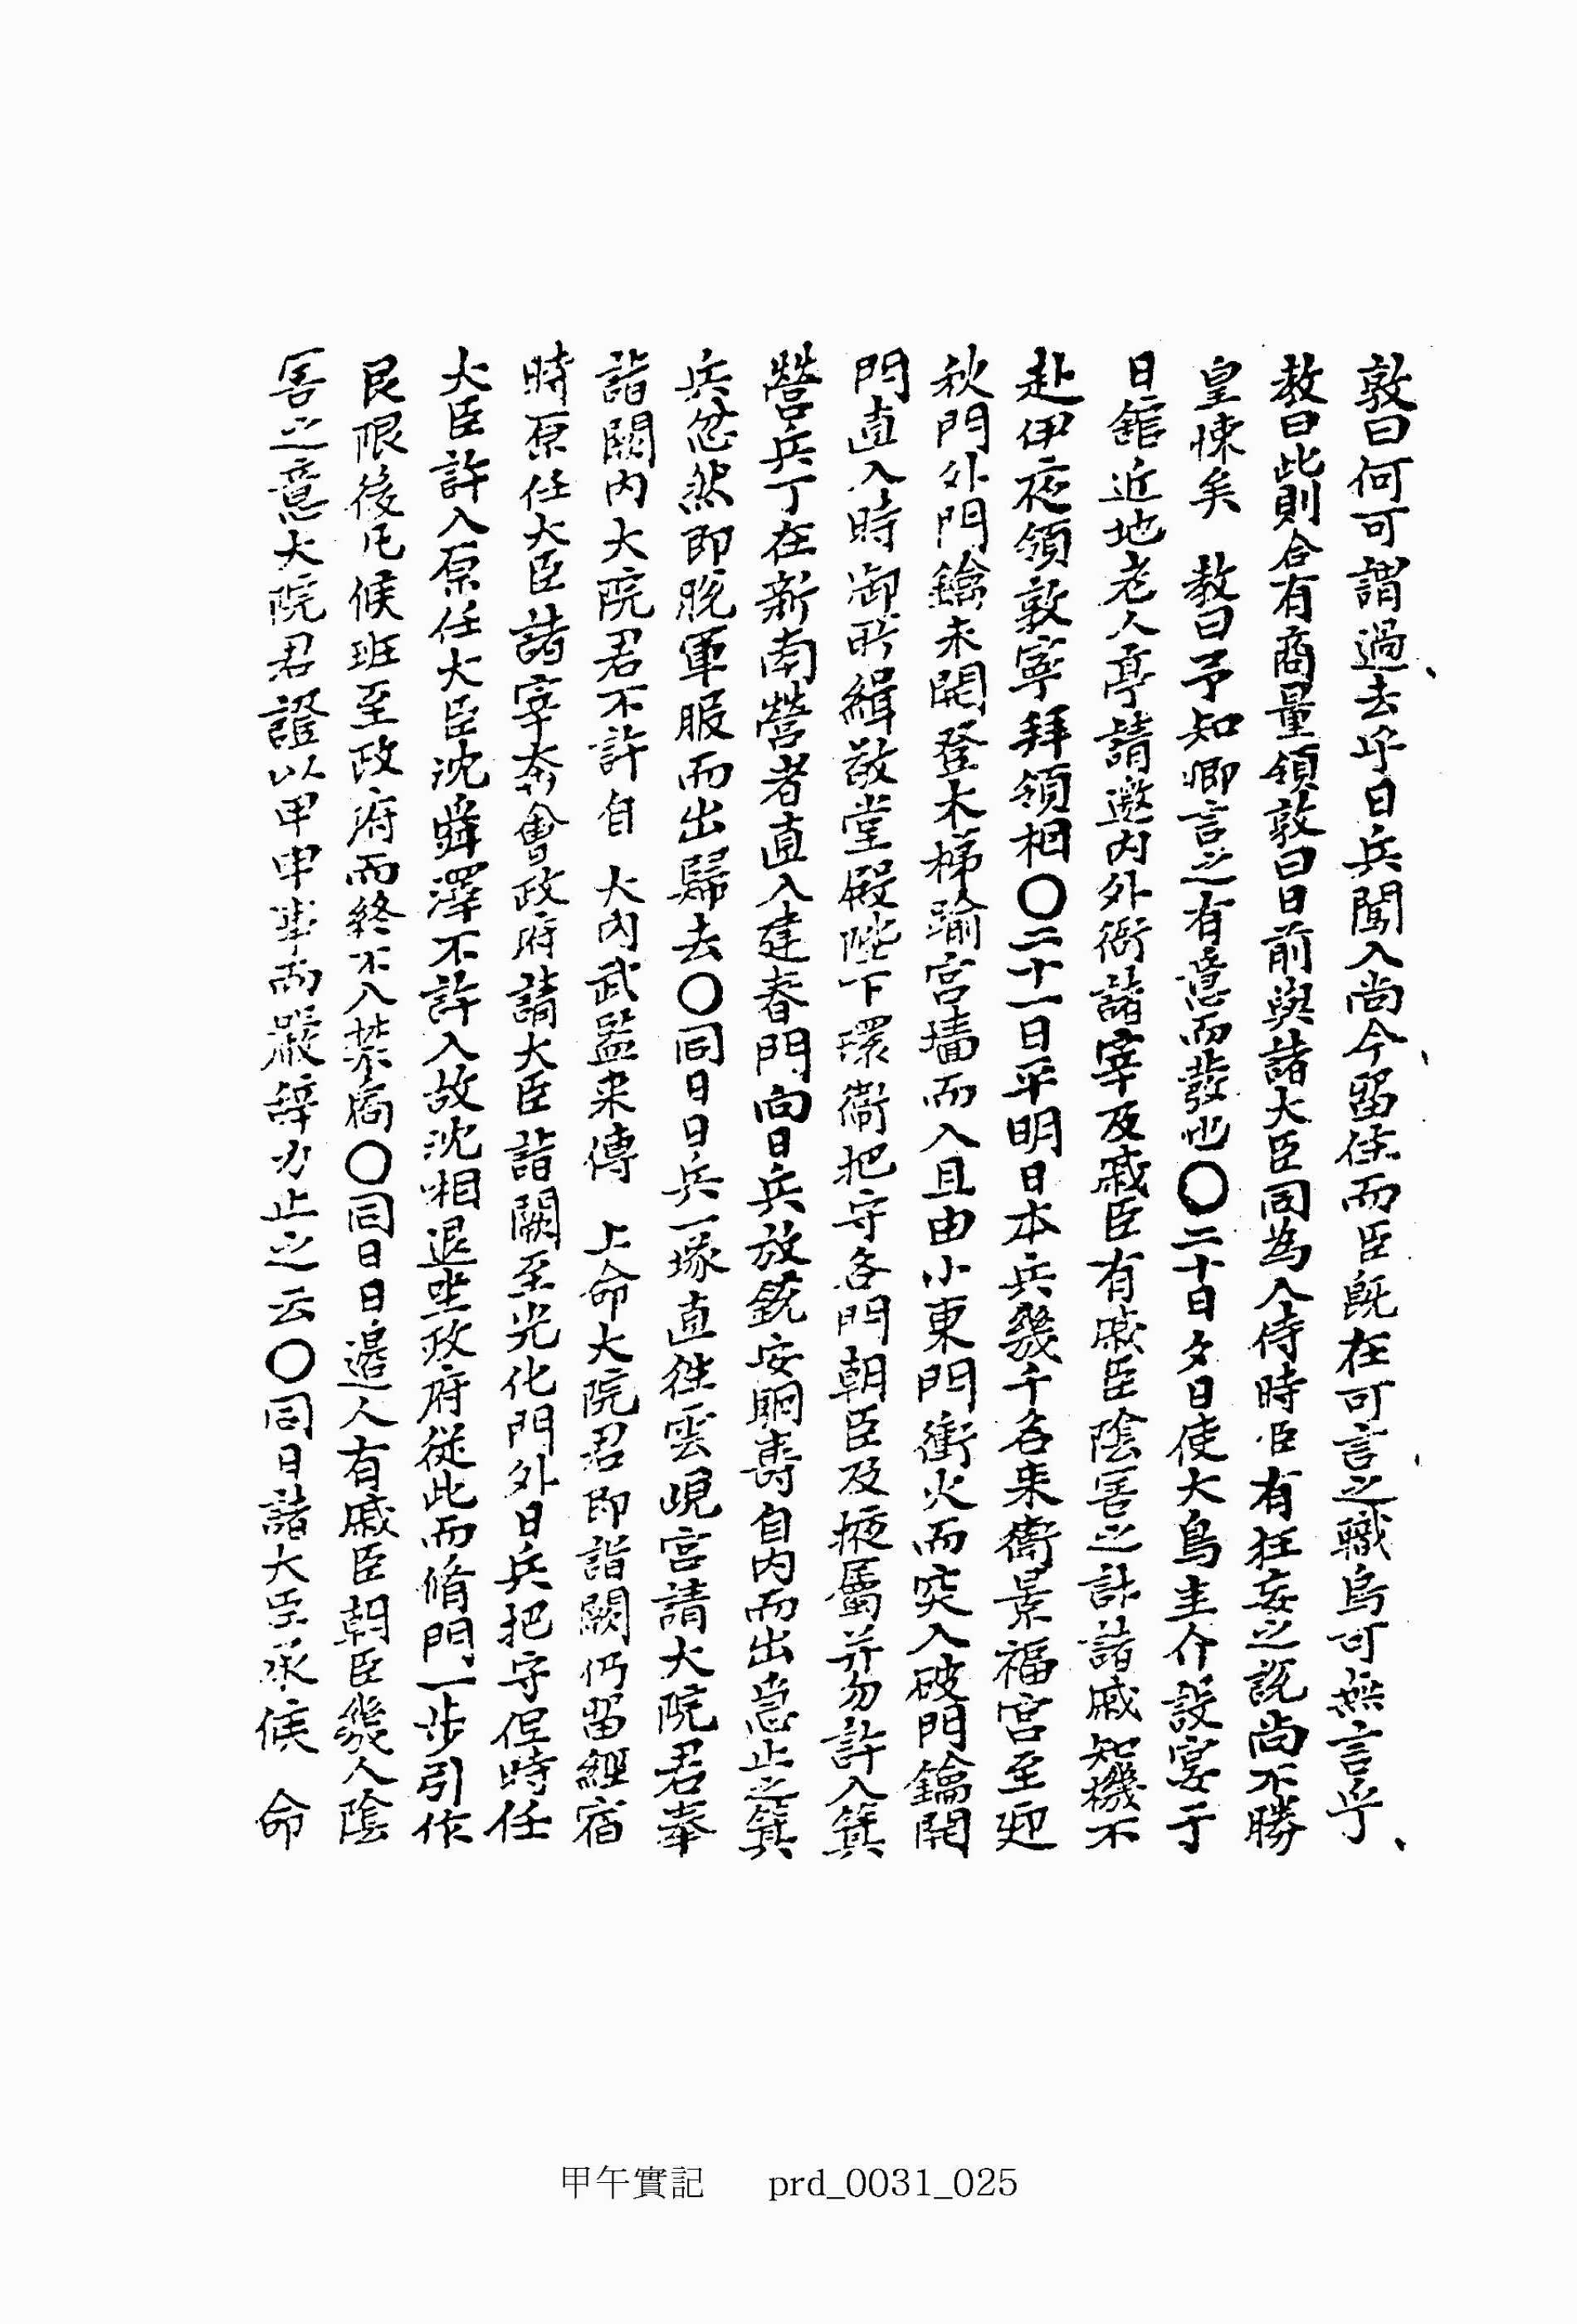 敦曰何可謂過去乎日兵闖入尙今留住而臣旣在可言之職烏可無言乎
敎曰此則合有商量領敦曰日前與諸大臣同爲入侍時臣有狂妄之說尙不勝
皇悚矣 敎曰予知卿言之有意而發也〇二十日夕日使大鳥圭介設宴于
日舘近地老人亭請邀內外衙諸宰及戚臣有戚臣陰害之計諸戚知機不
赴伊夜領敦寧拜領相〇二十一日平明日本兵幾千名來衛景福宮至迎
秋門外門鑰未開登木梯踰宮墻而入且由小東門衝火而突入破門鑰開
門直入時御所緝敬堂殿陛下環衛把守各門朝臣及掖屬幷勿許入箕
營兵丁在新南營者直入建春門向日兵放銃安駉壽自內而出急止之箕
兵忿然卽脫軍服而出歸去〇同日日兵一隊直徃雲峴宮請大院君奉
詣闕內大院君不許自 大內武監來傳 上命大院君卽詣闕仍留經宿
時原任大臣諸宰奔會政府請大臣詣闕至光化門外日兵把守但時任
大臣許入原任大臣沈舜澤不許入故沈相退坐政府從此而脩門一步引作
艮限後凡候班至政府而終不入禁扃〇同日日邊人有戚臣朝臣幾人陰
害之意大院君證以甲申事而嚴辭力止之云〇同日諸大臣承候 命
甲午實記 prd_0031_025